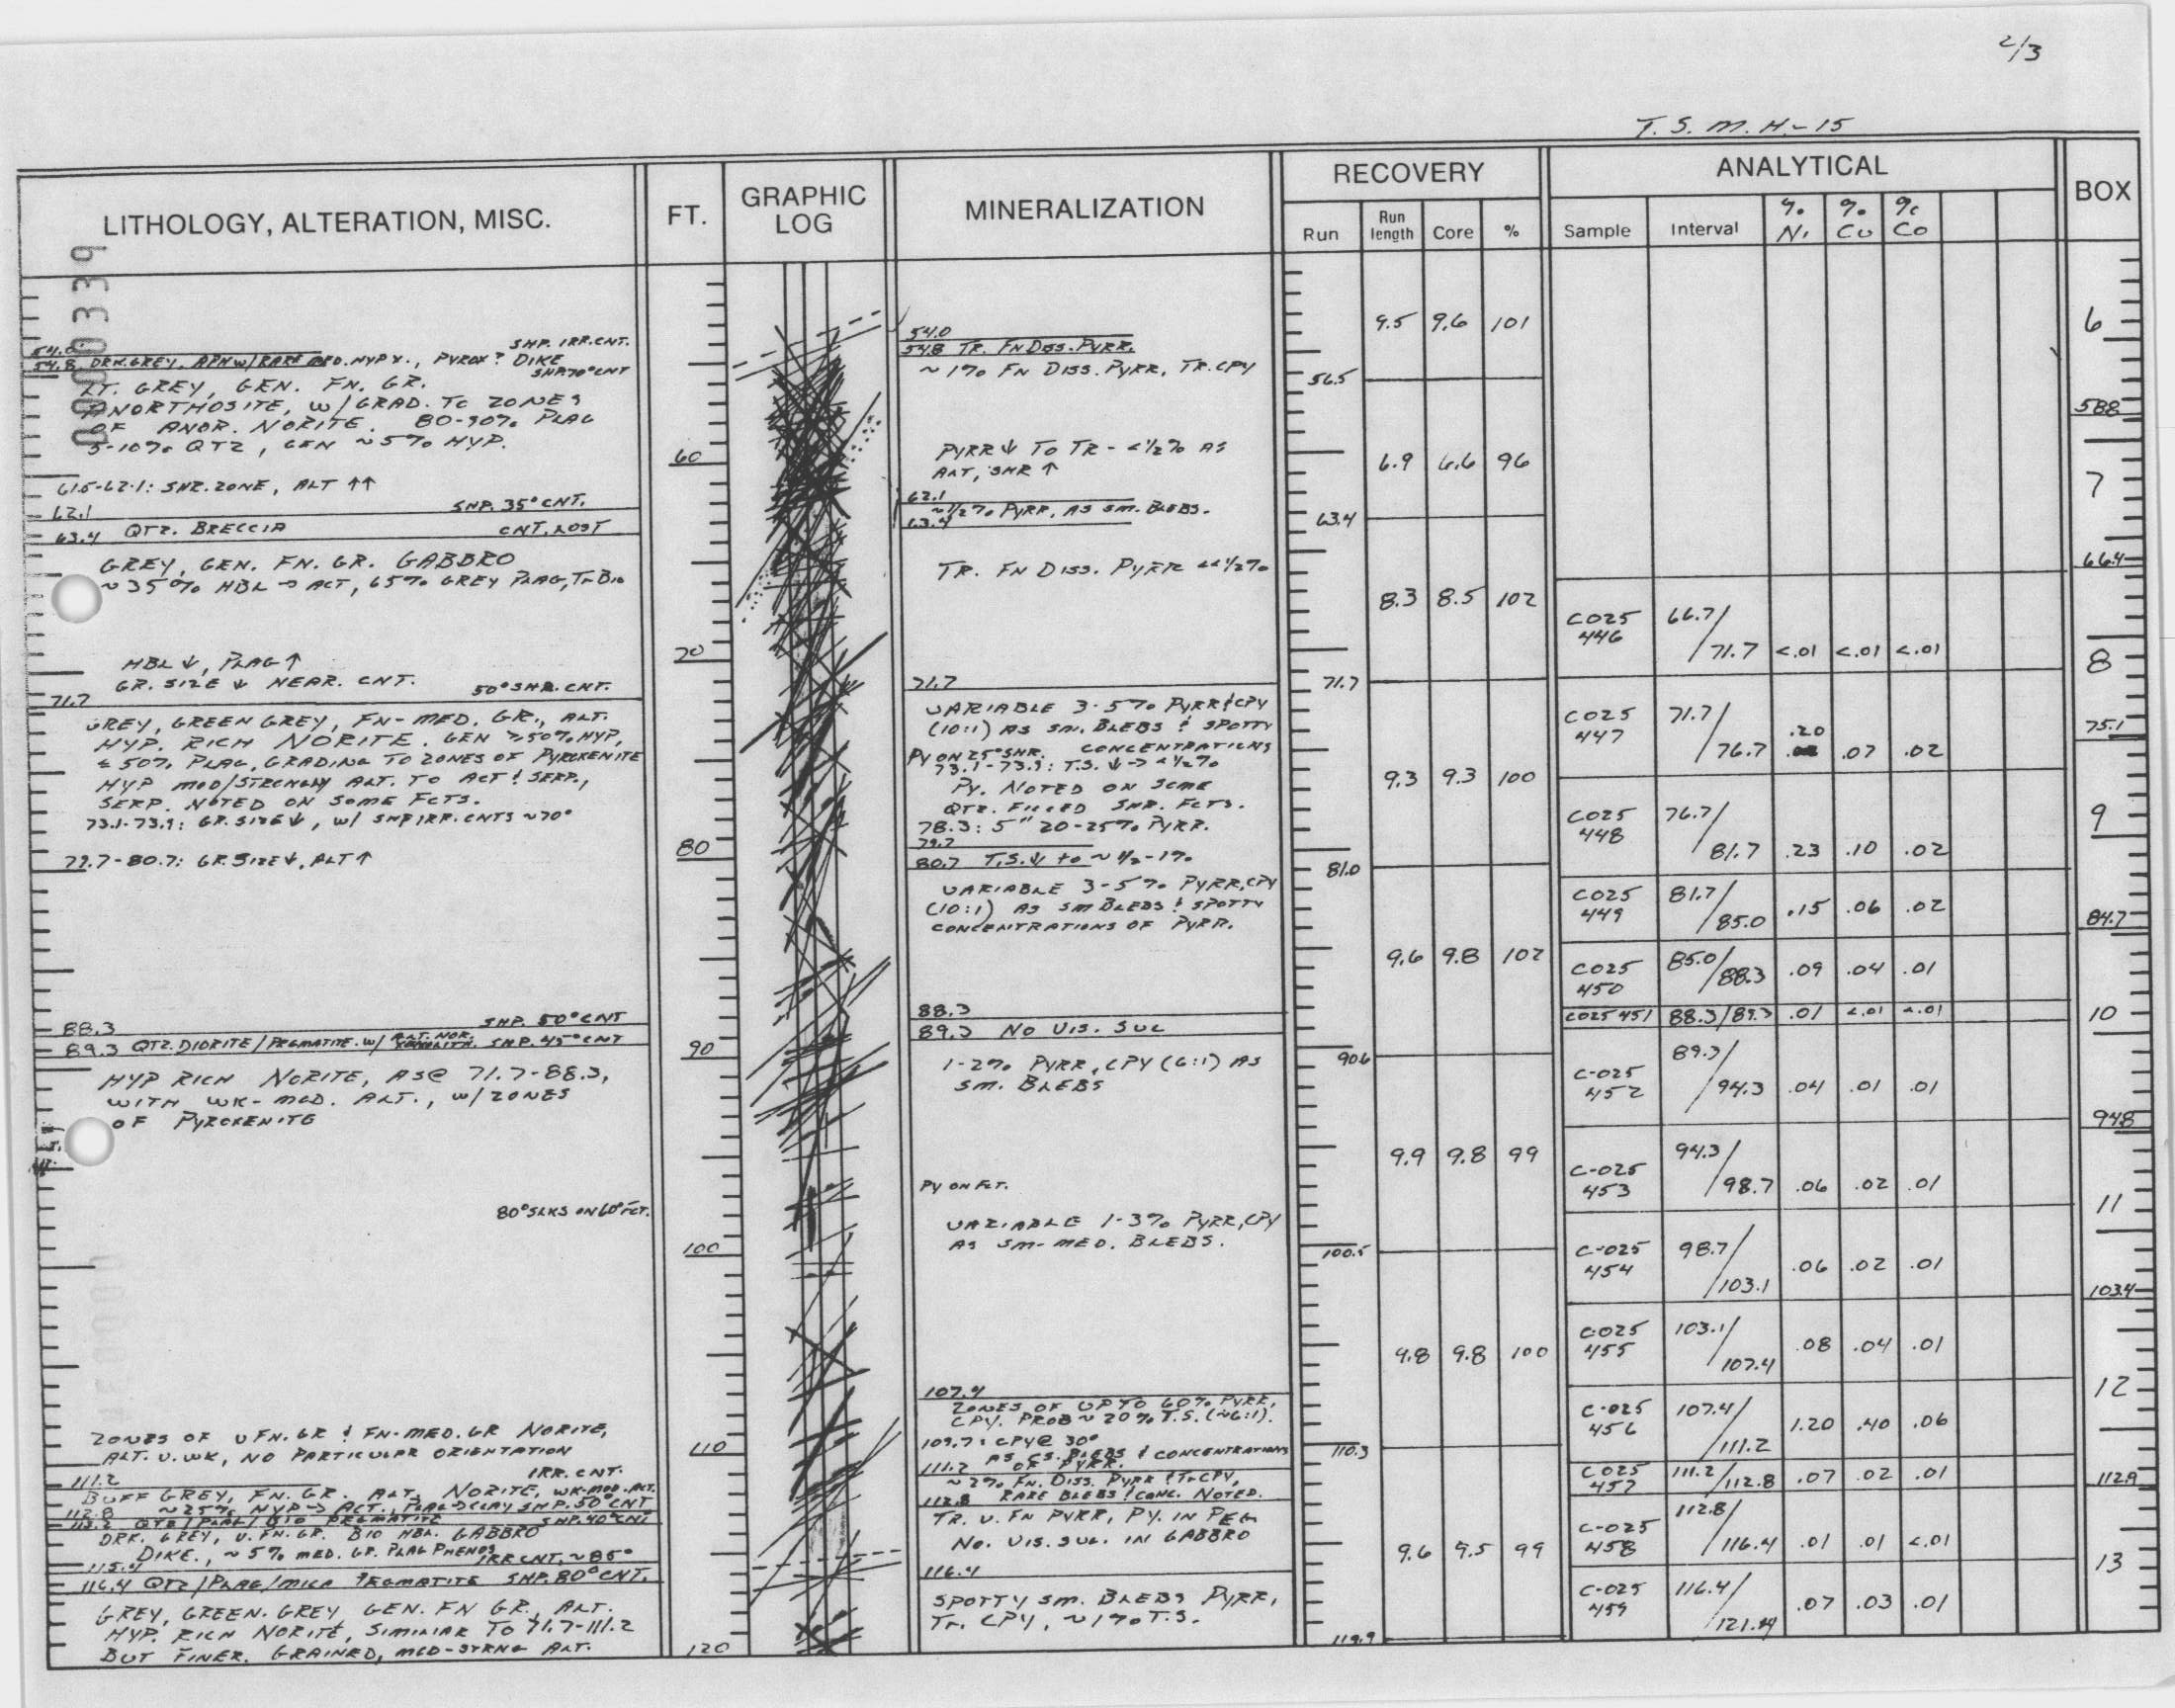 2/3
T. S. M. H.-15
LITHOLOGY, ALTERATION, MISC.
FT.
GRAPHIC
LOG
MINERALIZATION
RECOVERY
Run
Run
length
Core
%
ANALYTICAL
Sample
Interval
% Ni
% Cu
% Co
BOX
000339
SHP. IRR. CNT.
54.0
54.8 DRK. GREY, APH W/ RARE MED. HYPX., PYROX? DIKE
SHP 70° CNT
LT. GREY, GEN. FN. GR.
ANORTHOSITE, W/ GRAD. TO ZONES
OF ANOR. NORITE. 80-90% PLAG
5-10% QTZ, GEN ~5% HYP.
61.5-62.1: SHR. ZONE, ALT ↑↑
62.1 SHP. 35° CNT.
63.4 QTZ. BRECCIA CNT. LOST
GREY, GEN. FN. GR. GABBRO
~35% HBL → ACT, 65% GREY PLAG, Tr BIO
HBL ↓, PLAG ↑
GR. SIZE ↓ NEAR. CNT. 50° SHR. CNT.
71.7
GREY, GREEN GREY, FN-MED. GR., ALT.
HYP. RICH NORITE. GEN ≥50% HYP,
≤ 50% PLAG, GRADING TO ZONES OF PYROXENITE
HYP MOD/STRONGLY ALT. TO ACT & SERP.,
SERP. NOTED ON SOME FCTS.
73.1-73.9: GR. SIZE ↓, W/ SHP IRR. CNTS ~70°
79.7-80.7: GR. SIZE ↓, ALT ↑
88.3 SHP. 50° CNT
89.3 QTZ. DIORITE/PEGMATITE. W/ ALT. NOR. XENOLITH. SHP. 45° CNT
HYP RICH NORITE, AS @ 71.7-88.3,
WITH WK-MOD. ALT., W/ ZONES
OF PYROXENITE
80° SLKS ON 60° FCT.
ZONES OF V FN. GR & FN-MED. GR NORITE,
ALT. V. WK, NO PARTICULAR ORIENTATION
111.2 IRR. CNT.
BUFF GREY, FN. GR. ALT. NORITE, WK-MOD. ALT.
~25% HYP → ACT., PLAG → CLAY SHP. 50° CNT
112.8
113.2 QTZ/PLAG/BIO PEGMATITE SHP. 40° CNT
DRK. GREY, V. FN. GR. BIO HBL. GABBRO
DIKE., ~5% MED. GR. PLAG PHENOS
115.4 IRR CNT, ~85°
116.4 QTZ/PLAG/MICA PEGMATITE SHP. 80° CNT.
GREY, GREEN. GREY, GEN. FN GR., ALT.
HYP. RICH NORITE, SIMILIAR TO 71.7-111.2
BUT FINER. GRAINED, MOD-STRNG ALT.
60
70
80
90
100
110
120
54.0
54.8 TR. FN DISS. PYRR.
~1% FN DISS. PYRR, TR. CPY
PYRR ↓ TO TR - <1/2% AS
ALT, SHR ↑
62.1
~1/2% PYRR, AS SM. BLEBS.
63.4
TR. FN DISS. PYRR <<1/2%
71.7
VARIABLE 3-5% PYRR & CPY
(10:1) AS SM. BLEBS & SPOTTY
PY ON 25° SHR. CONCENTRATIONS
73.1-73.9: T.S. ↓ → <1/2%
PY. NOTED ON SOME
QTZ. FILLED SHR. FCTS.
78.3: 5" 20-25% PYRR.
79.7
80.7 T.S. ↓ to ~1/2-1%
VARIABLE 3-5% PYRR, CPY
(10:1) AS SM BLEBS & SPOTTY
CONCENTRATIONS OF PYRR.
88.3
89.3 NO VIS. SUL
1-2% PYRR, CPY (6:1) AS
SM. BLEBS
PY ON FCT.
VARIABLE 1-3% PYRR, CPY
AS SM-MED. BLEBS.
107.4
ZONES OF UP TO 60% PYRR,
CPY. PROB ~20% T.S. (~6:1).
109.7: CPY @ 30°
AS CS. BLEBS & CONCENTRATIONS
111.2 OF PYRR.
~2% FN. DISS. PYRR & Tr CPY,
112.8 RARE BLEBS & CONC. NOTED.
TR. V. FN PYRR, PY. IN PEG
NO. VIS. SUL. IN GABBRO
116.4
SPOTTY SM. BLEBS PYRR,
Tr. CPY, ~1% T.S.
9.5 9.6 101
56.5
6.9 6.6 96
63.4
8.3 8.5 102
71.7
9.3 9.3 100
81.0
9.6 9.8 102
90.6
9.9 9.8 99
100.5
9.8 9.8 100
110.3
9.6 9.5 99
119.9
C025 446 66.7/71.7 <.01 <.01 <.01
C025 447 71.7/76.7 .20 .07 .02
C025 448 76.7/81.7 .23 .10 .02
C025 449 81.7/85.0 .15 .06 .02
C025 450 85.0/88.3 .09 .04 .01
C025 451 88.3/89.3 .01 <.01 <.01
C-025 452 89.3/94.3 .04 .01 .01
C-025 453 94.3/98.7 .06 .02 .01
C-025 454 98.7/103.1 .06 .02 .01
C025 455 103.1/107.4 .08 .04 .01
C-025 456 107.4/111.2 1.20 .40 .06
C025 457 111.2/112.8 .07 .02 .01
C-025 458 112.8/116.4 .01 .01 <.01
C-025 459 116.4/121.4 .07 .03 .01
6
58.8
7
66.4
8
75.1
9
84.7
10
94.8
11
103.4
12
112.9
13